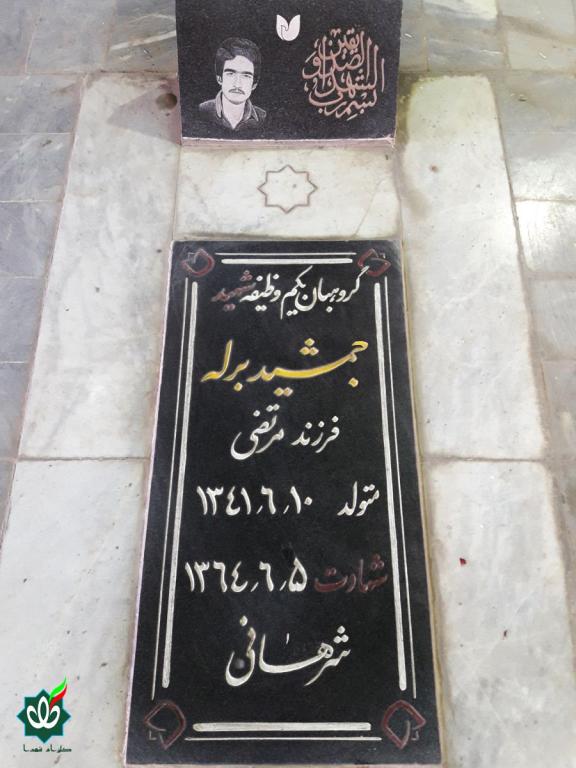 بسم رب الشهداء و الصدیقین
گروهبان یکم وظیفه شهید
جمشید برله
فرزند مرتضی
متولد ۱۳۴۱٫۶٫۱۰
شهادت ۱۳۶۴٫۶٫۵
شرهانی
گلزار شهدا